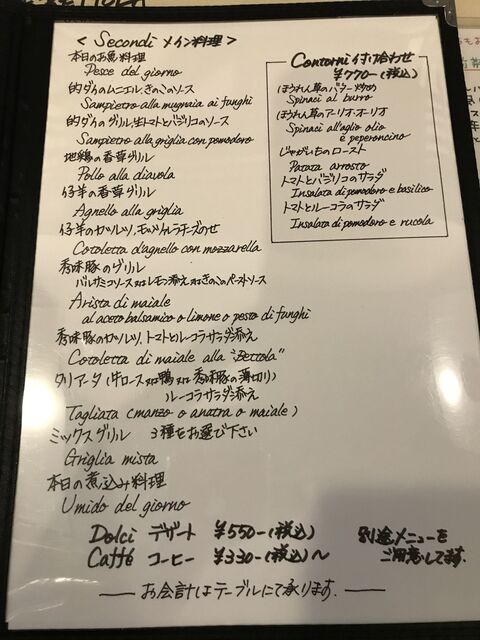 < Secondi メイン料理 >
本日のお魚料理
Pesce del giorno
的ダイのムニエル、きのこのソース
Sampietro alla mugnaia ai funghi
的ダイのグリル、生トマトとバジリコのソース
Sampietro alla griglia con pomodoro
地鶏の香草グリル
Pollo alla diavola
仔羊の香草グリル
Agnello alla griglia
仔羊のカツレツ、モッツァレラチーズのせ
Cotoletta d'agnello con mozzarella
秀味豚のグリル
バルサミコソース又はレモン添え又はきのこのペーストソース
Arista di maiale
al aceto balsamico o limone o pesto di funghi
秀味豚のカツレツ、トマトとルーコラサラダ添え
Cotoletta di maiale alla "Bettola"
タリアータ (牛ロース又は鴨又は秀味豚の薄切り)
ルーコラサラダ添え
Tagliata (manzo o anatra o maiale)
ミックスグリル 3種をお選び下さい
Griglia mista
本日の煮込み料理
Umido del giorno
Contorni 付け合わせ
¥770-(税込)
ほうれん草のバター炒め
Spinaci al burro
ほうれん草のアーリオ・オーリオ
Spinaci all'aglio olio
e peperoncino
じゃがいものロースト
Patata arrosto
トマトとバジリコのサラダ
Insalata di pomodoro e basilico
トマトとルーコラのサラダ
Insalata di pomodoro e rucola
Dolci デザート ¥550-(税込)
Caffé コーヒー ¥330-(税込)~
別途メニューを
ご用意してます.
お会計はテーブルにて承ります.